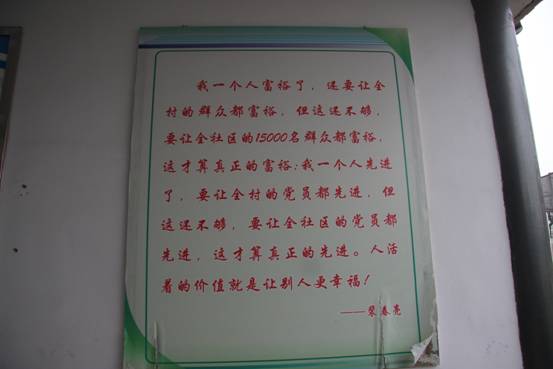 我一个人富裕了，还要让全
村的群众都富裕，但这还不够，
要让全社区的15000名群众都富裕，
这才算真正的富裕；我一个人先进
了，要让全村的党员都先进，但
这还不够，要让全社区的党员都
先进，这才算真正的先进。人活
着的价值就是让别人更幸福！
——裴春亮